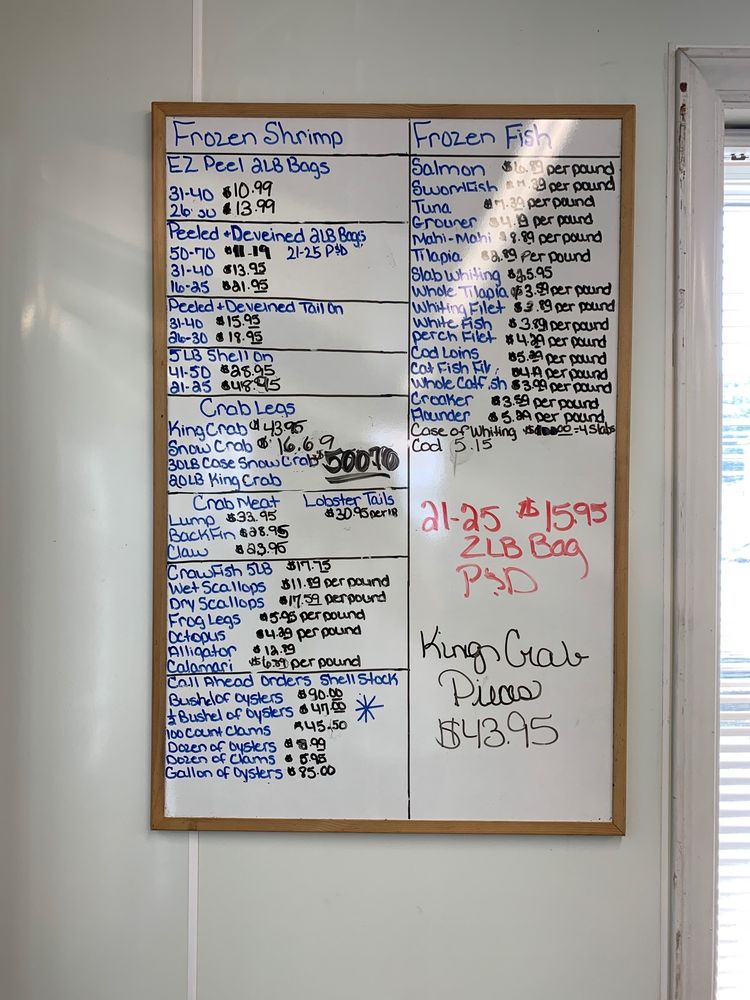 Frozen Shrimp
EZ Peel 2LB Bags
31-40 $10.99
26-30 $13.99
Peeled + Deveined 2LB Bags
50-70 $11.19 21-25 P&D
31-40 $13.95
16-25 $21.95
Peeled + Deveined Tail On
31-40 $15.95
26-30 $18.95
5LB Shell On
41-50 $28.95
21-25 $48.95
Crab Legs
King Crab $43.95
Snow Crab $16.69
30LB Case Snow Crab
20LB King Crab
Crab Meat Lobster Tails
Lump $33.95 $30.95 per lB
BackFin $28.95
Claw $23.95
CrawFish 5LB $17.75
Wet Scallops $11.89 per pound
Dry Scallops $17.59 per pound
Frog Legs $5.95 per pound
Octopus $4.29 per pound
Alligator
Calamari per pound
Call Ahead Orders Shell Stock
Bushel of Oysters $90.00
½ Bushel of Oysters $47.00
100 Count Clams $45.50
Dozen of Oysters
Dozen of Clams $5.95
Gallon of Oysters $85.00
Frozen Fish
Salmon per pound
Swordfish per pound
Tuna per pound
Grouper per pound
Mahi-Mahi per pound
Tilapia per pound
Slab Whiting
Whole Tilapia $3.59 per pound
Whiting Filet per pound
White Fish $3.89 per pound
perch Filet $4.29 per pound
Cod Loins per pound
Cat Fish per pound
Whole Catfish $3.99 per pound
Croaker $3.59 per pound
Flounder per pound
Case of Whiting = 4 Slabs
Cod 5.15
21-25 $15.95
2LB Bag
P&D
King Crab
Pieces
$43.95